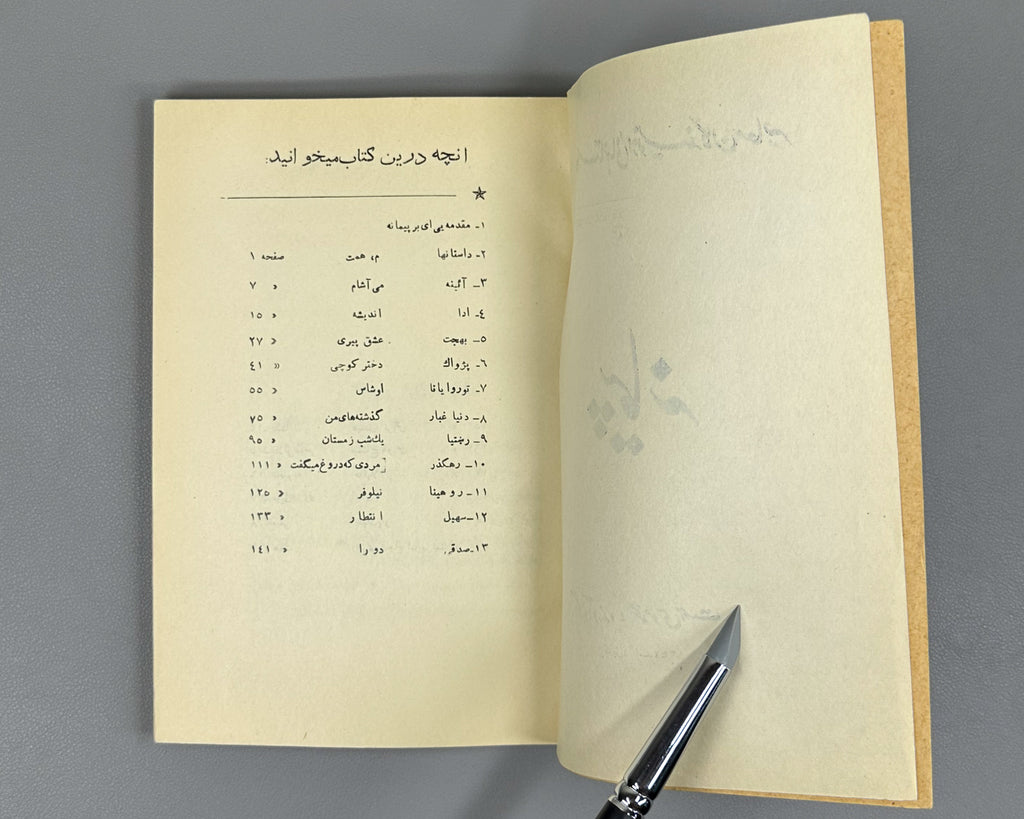 انچه درین کتاب میخوانید:
۱- مقدمه یی ای بر پیمانه
۲- داستانها م، همت صفحه ۱
۳- آئینه می آشام » ۷
۴- ادا اندیشه » ۱۵
۵- بهجت عشق پیری » ۲۷
۶- پژواك دختر کوچی » ۴۱
۷- توروایانا اوشاس » ۵۵
۸- دنیا غبار گذشته های من » ۷۵
۹- رضتیا یك شب زمستان » ۹۵
۱۰- رهگذر مردی که دروغ میگفت » ۱۱۱
۱۱- روهینا نیلوفر » ۱۲۵
۱۲- سهیل انتظار » ۱۳۳
۱۳- صدقی دورا » ۱۴۱
پیمانه